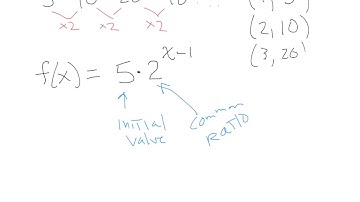 x2 x2 x2
(2, 10)
(3, 20)
f(x) = 5·2^(x-1)
INITIAL
VALUE
COMMON
RATIO